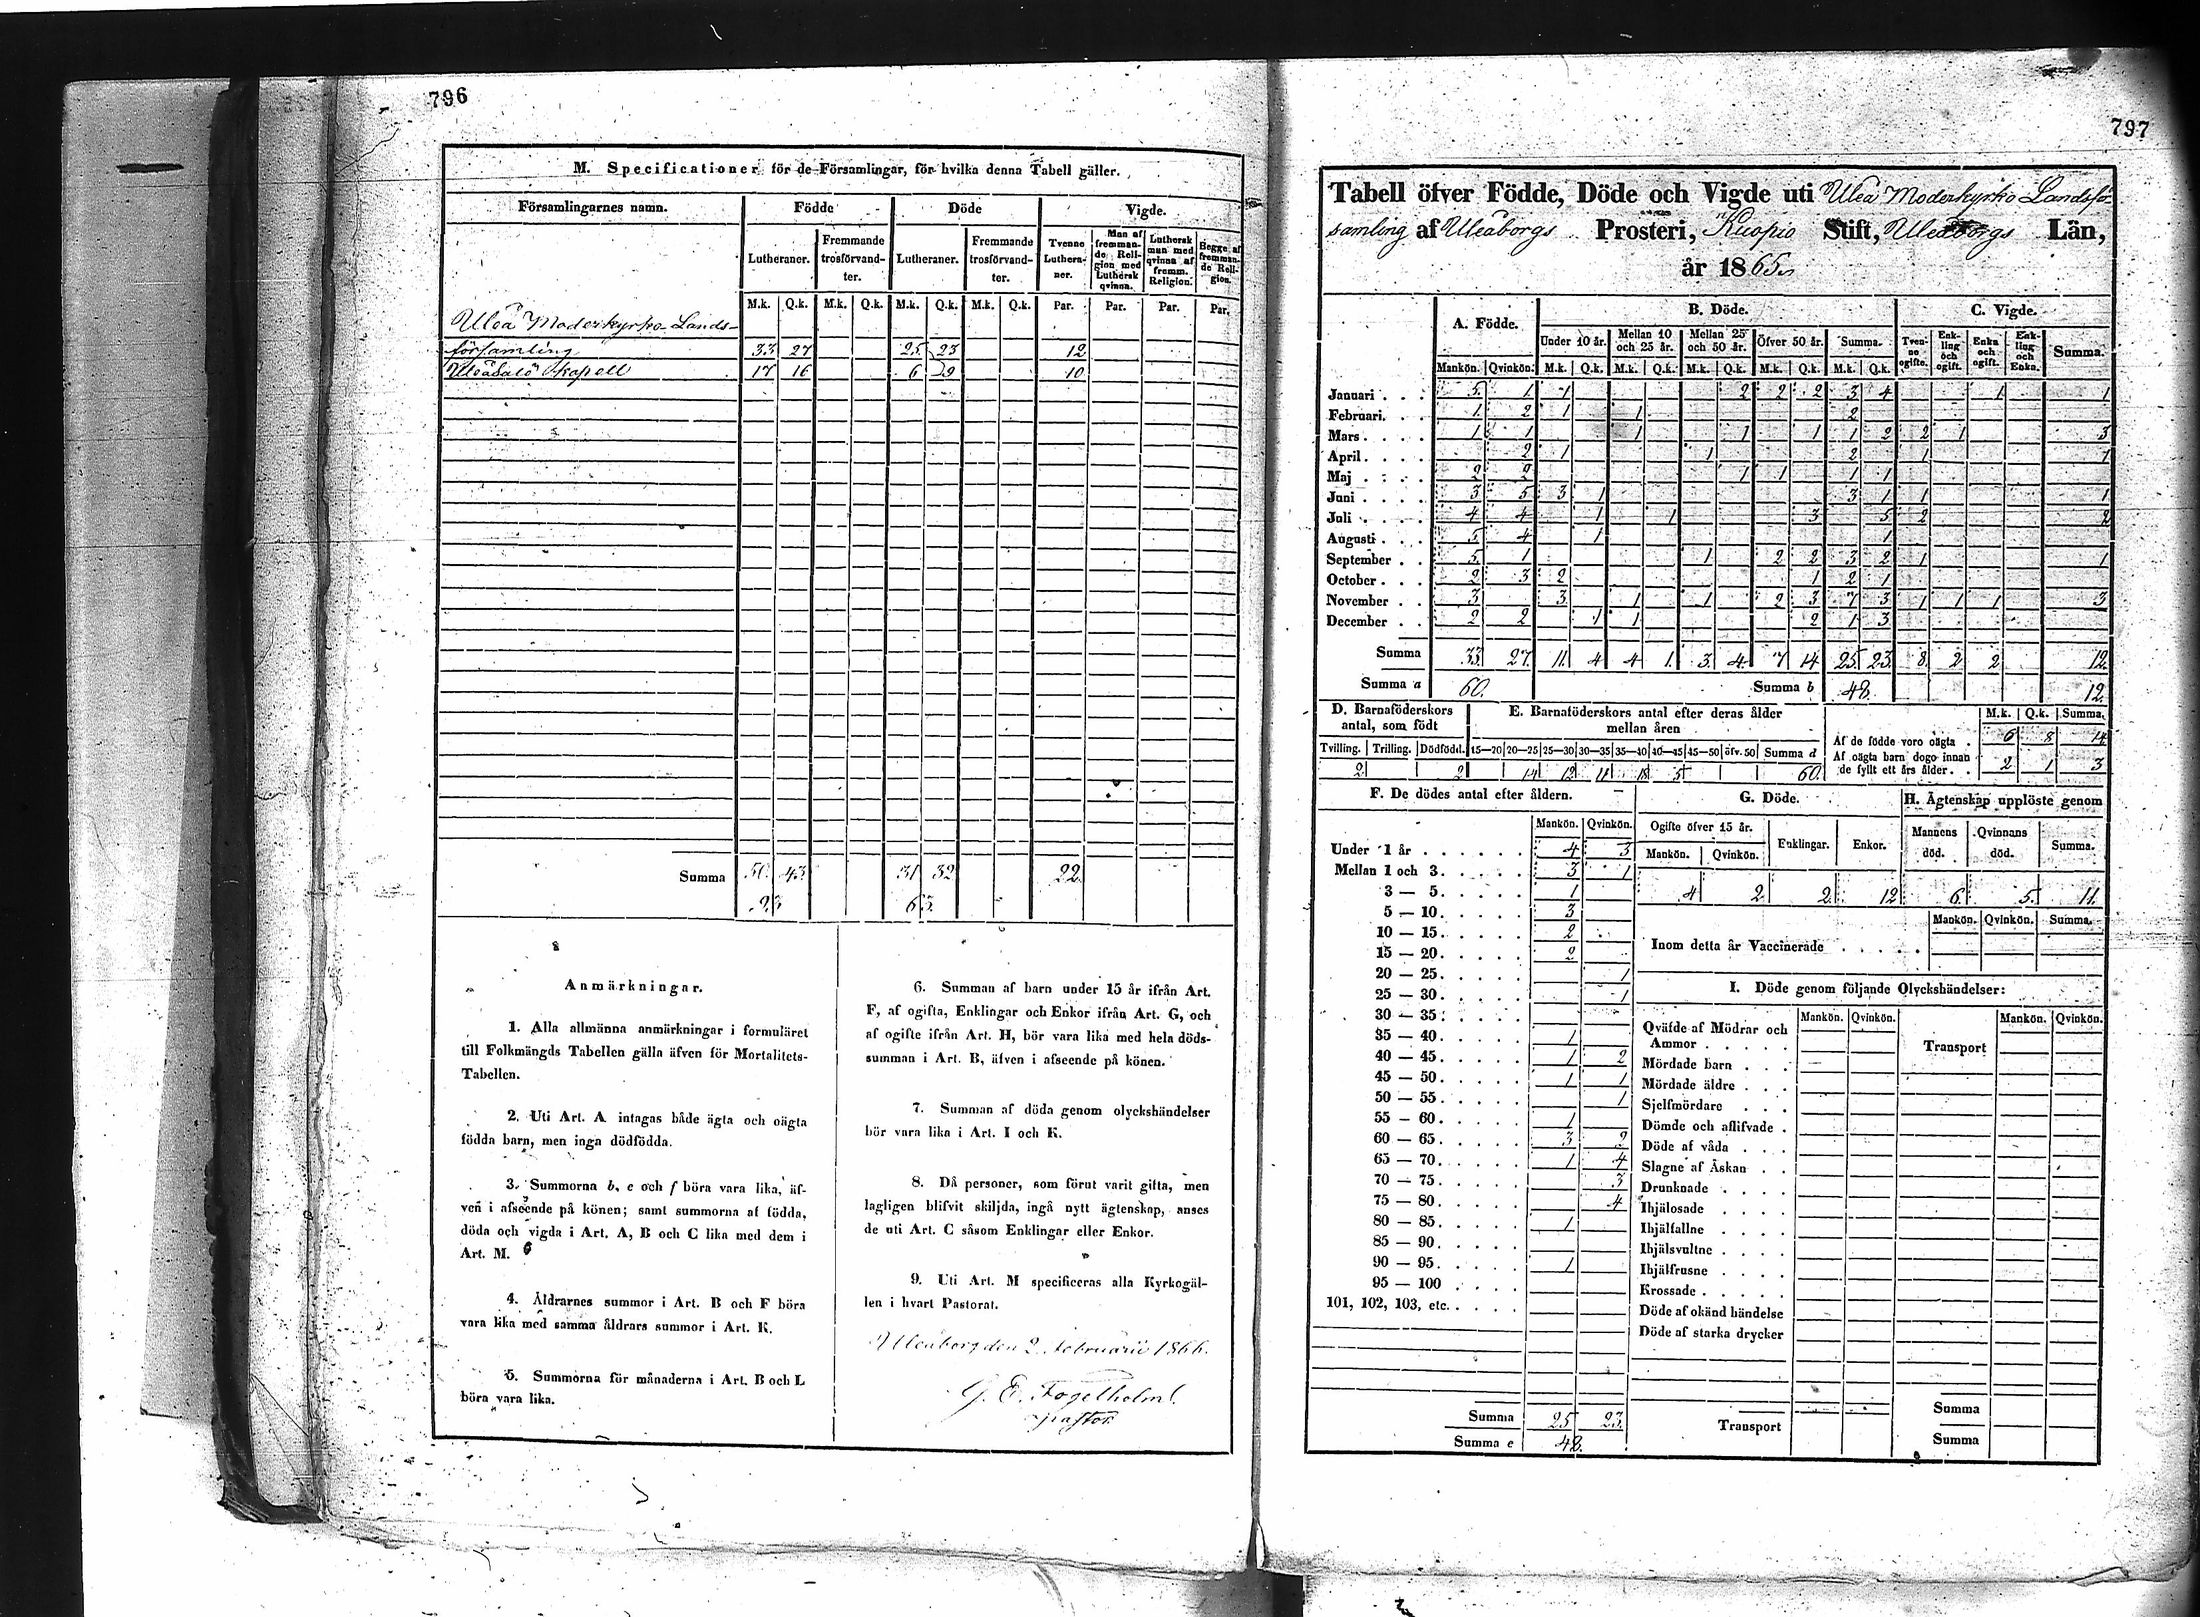 796
M. Specificationer för de Församlingar, för hvilka denna Tabell gäller.
Församlingarnes namn. Födde Döde Vigde.
Lutheraner. Fremmande trosförvand-ter. Lutheraner. Fremmande trosförvand-ter. Tvenne Luthera-ner. Man af fremman-de Reli-gion med Luthersk qvinna. Luthersk man med qvinna af fremm. Religion. Begge af fremman-de Reli-gion.
M.k. Q.k. M.k. Q.k. M.k. Q.k. M.k. Q.k. Par. Par. Par. Par.
Uleå Moderkyrko-Lands-
församling 33 27 25 23 12
Uleåsalo Kapell 17 16 6 9 10
Summa 50 43 31 32 22.
93 63.
Anmärkningar.
1. Alla allmänna anmärkningar i formuläret
till Folkmängds Tabellen gälla äfven för Mortalitets-
Tabellen.
2. Uti Art. A intagas både ägta och oägta
födda barn, men inga dödfödda.
3. Summorna b, e och f böra vara lika, äf-
ven i afseende på könen; samt summorna af födda,
döda och vigda i Art. A, B och C lika med dem i
Art. M.
4. Åldrarnes summor i Art. B och F böra
vara lika med samma åldrars summor i Art. K.
5. Summorna för månaderna i Art. B och L
böra vara lika.
6. Summan af barn under 15 år ifrån Art.
F, af ogifta, Enklingar och Enkor ifrån Art. G, och
af ogifte ifrån Art. H, bör vara lika med hela döds-
summan i Art. B, äfven i afseende på könen.
7. Summan af döda genom olyckshändelser
bör vara lika i Art. I och K.
8. Då personer, som förut varit gifta, men
lagligen blifvit skiljda, ingå nytt ägtenskap, anses
de uti Art. C såsom Enklingar eller Enkor.
9. Uti Art. M specificeras alla Kyrkogäl-
len i hvart Pastorat.
Uleåborg den 2 Februarii 1866.
G. E. Fogelholm
pastor
797
Tabell öfver Födde, Döde och Vigde uti Uleå Moderkyrko Landsför-
samling af Uleåborgs Prosteri, Kuopio Stift, Uleåborgs Län,
år 1865.
A. Födde. B. Döde. C. Vigde.
Under 10 år. Mellan 10 och 25 år. Mellan 25 och 50 år. Öfver 50 år. Summa. Tven-ne ogifte. Enk-ling och ogift. Enka och ogift. Enk-ling och Enka. Summa.
Mankön. Qvinkön. M.k. Q.k. M.k. Q.k. M.k. Q.k. M.k. Q.k. M.k. Q.k.
Januari . . . 5 1 1 2 2 2 3 4 1 1
Februari. . . 1 2 1 1 2
Mars . . . . 1 1 1 1 1 1 2 2 1 3
April . . . . 2 1 1 2 1 1
Maj . . . . 2 2 1 1 1 1
Juni . . . . 3 5 3 1 3 1 1 1
Juli . . . . 4 4 1 1 3 5 2 2
Augusti . . . 5 4 1 1
September . . 5 1 1 2 2 3 2 1 1
October . . . 2 3 2 1 2 1
November . . 3 3 1 1 2 3 7 3 1 1 1 3
December . . 2 2 1 1 2 1 3
Summa 33 27 11 4 4 1 3 4 7 14 25 23 8 2 2 12
Summa a 60. Summa b 48. 12
D. Barnaföderskors antal, som födt
E. Barnaföderskors antal efter deras ålder mellan åren
Tvilling. Trilling. Dödfödd. 15—20 20—25 25—30 30—35 35—40 40—45 45—50 öfv. 50 Summa d
2 2 14 12 11 18 5 60
M.k. Q.k. Summa.
Af de födde voro oägta . 6 8 14
Af oägta barn dogo innan
de fyllt ett års ålder . . 2 1 3
F. De dödes antal efter åldern.
Mankön. Qvinkön.
Under 1 år . . . . . . 4 3
Mellan 1 och 3. . . . . 3 1
3 — 5. . . . . 1
5 — 10. . . . . 3
10 — 15. . . . . 2
15 — 20. . . . . 2
20 — 25. . . . . 1
25 — 30. . . . . 1
30 — 35. . . . .
35 — 40. . . . . 1
40 — 45. . . . . 1 2
45 — 50. . . . . 1 1
50 — 55. . . . . 1
55 — 60. . . . . 1
60 — 65. . . . . 3 2
65 — 70. . . . . 1 4
70 — 75. . . . . 3
75 — 80. . . . . 4
80 — 85. . . . . 1
85 — 90. . . . .
90 — 95. . . . . 1
95 — 100 . . . .
101, 102, 103, etc. . . . .
Summa 25 23
Summa e 48.
G. Döde.
Ogifte öfver 15 år. Enklingar. Enkor.
Mankön. Qvinkön.
4 2 2 12
H. Ägtenskap upplöste genom
Mannens död. Qvinnans död. Summa.
6 5 11
Mankön. Qvinkön. Summa.
Inom detta år Vaccinerade . . . . .
I. Döde genom följande Olyckshändelser:
Mankön. Qvinkön. Mankön. Qvinkön.
Qväfde af Mödrar och
Ammor . . . . . Transport
Mördade barn . . .
Mördade äldre . . .
Sjelfmördare . . .
Dömde och aflifvade .
Döde af våda . . .
Slagne af Åskan . .
Drunknade . . . .
Ihjälosade . . . .
Ihjälfallne . . . .
Ihjälsvultne . . . .
Ihjälfrusne . . . .
Krossade . . . . .
Döde af okänd händelse
Döde af starka drycker
Transport
Summa
Summa